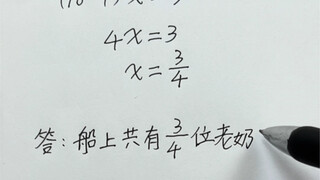 4x=3
x=3/4
答:船上共有3/4位老奶